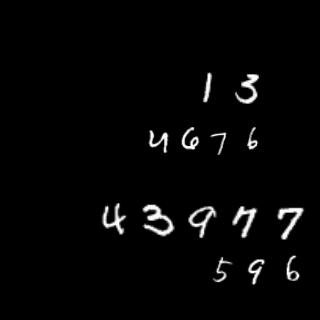 13
4676
43977
596